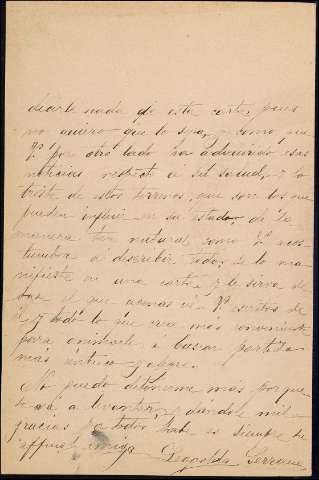 decirle nada de esta carta, pues
no quiero que lo sepa, y como que
V. por otro lado ha adquirido esas
noticias respecto a su salud, y lo
triste de estos terrenos, que son los que
pueden influir en su estado, de la
manera tan natural como V. acos-
tumbra a describir todo, se lo ma-
nifieste en una carta, y le sirva de
base el que además
y todo lo que crea más conveniente
para animarle a buscar partido
más
No puedo detenerme más porque
se va a levantar, y dándole mil
gracias por todo, sabe es siempre su
affma. amiga
Leopolda Serrano